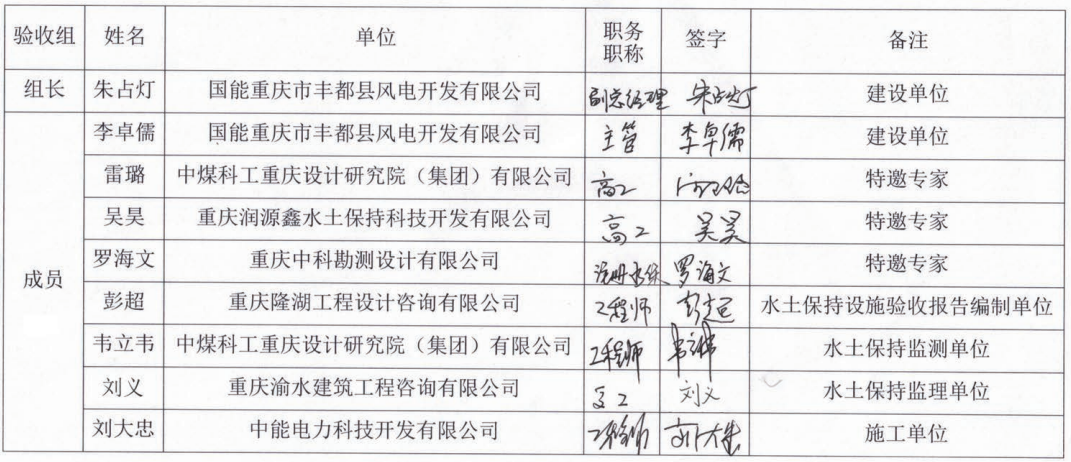 验收组 姓名 单位 职务职称 签字 备注
组长 朱占灯 国能重庆市丰都县风电开发有限公司 副总经理 朱占灯 建设单位
成员 李卓儒 国能重庆市丰都县风电开发有限公司 主管 李卓儒 建设单位
雷璐 中煤科工重庆设计研究院（集团）有限公司 高工 特邀专家
吴昊 重庆润源鑫水土保持科技开发有限公司 高工 吴昊 特邀专家
罗海文 重庆中科勘测设计有限公司 罗海文 特邀专家
彭超 重庆隆湖工程设计咨询有限公司 工程师 彭超 水土保持设施验收报告编制单位
韦立韦 中煤科工重庆设计研究院（集团）有限公司 工程师 韦立韦 水土保持监测单位
刘义 重庆渝水建筑工程咨询有限公司 刘义 水土保持监理单位
刘大忠 中能电力科技开发有限公司 工程师 刘大忠 施工单位